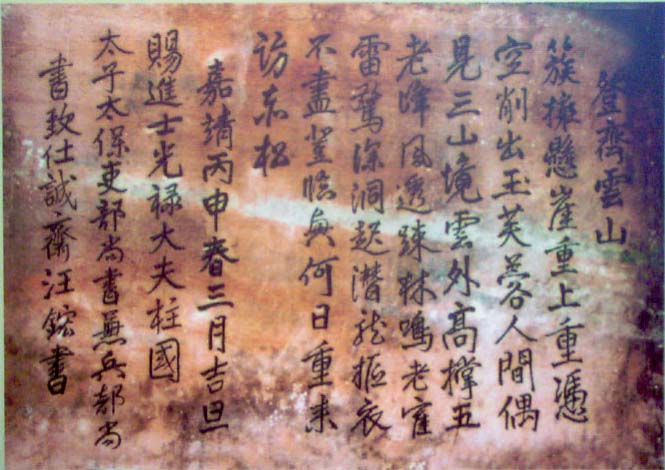 登齊雲山
簇擁懸崖重上重憑
空削出玉芙蓉人間偶
見三山境雲外高撑五
老峰風透踈林鳴老寉
雷驚深洞起潛龍摳衣
不盡登臨興何日重来
訪赤松
嘉靖丙申春三月吉旦
賜進士光禄大夫柱國
太子太保吏部尚書兼兵部尚
書致仕誠齋汪鋐書